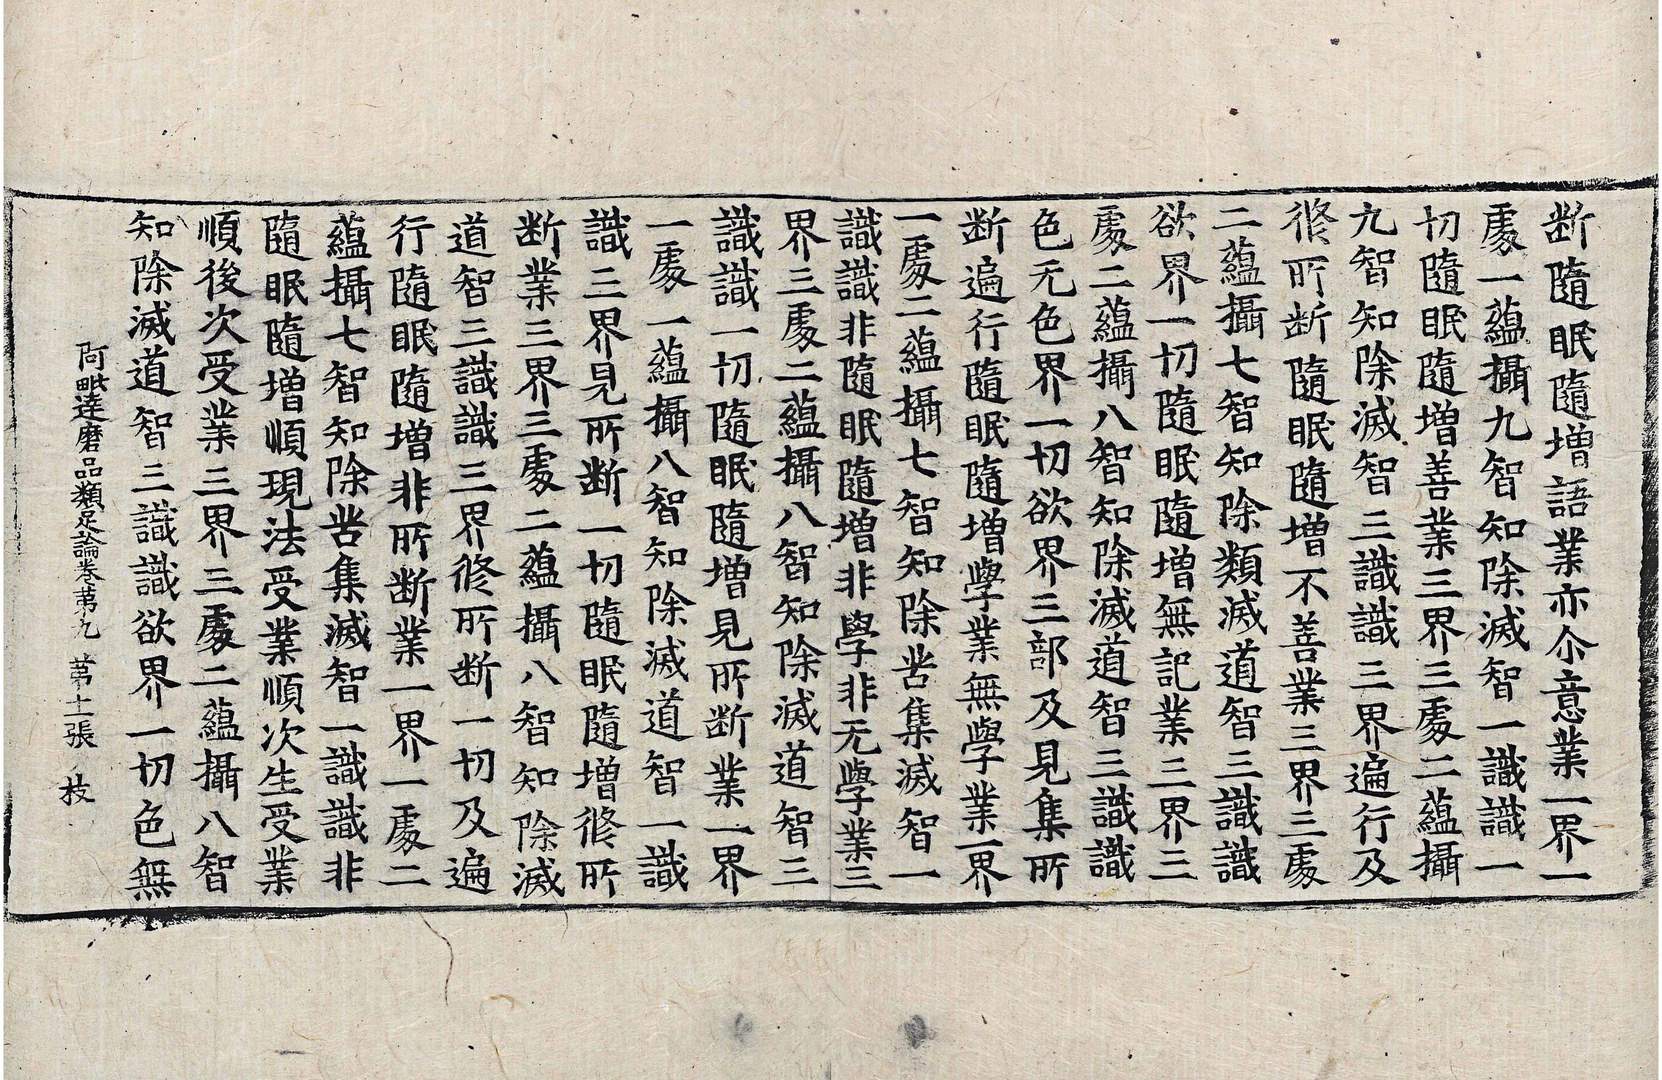 断隨眠隨增語業亦尒意業一界一
處一蘊攝九智知除滅智一識識一
切隨眠隨增善業三界三處二蘊攝
九智知除滅智三識識三界遍行及
修所断隨眠隨增不善業三界三處
二蘊攝七智知除類滅道智三識識
欲界一切隨眠隨增無記業三界三
處二蘊攝八智知除滅道智三識識
色无色界一切欲界三部及見集所
断遍行隨眠隨增學業無學業一界
一處二蘊攝七智知除苦集滅智一
識識非隨眠隨增非學非无學業三
界三處二蘊攝八智知除滅道智三
識識一切隨眠隨增見所断業一界
一處一蘊攝八智知除滅道智一識
識三界見所断一切隨眠隨增修所
断業三界三處二蘊攝八智知除滅
道智三識識三界修所断一切及遍
行隨眠隨增非所断業一界一處二
蘊攝七智知除苦集滅智一識識非
隨眠隨增順現法受業順次生受業
順後次受業三界三處二蘊攝八智
知除滅道智三識識欲界一切色無
阿毗達磨品類足論卷第九 第十一張 枝